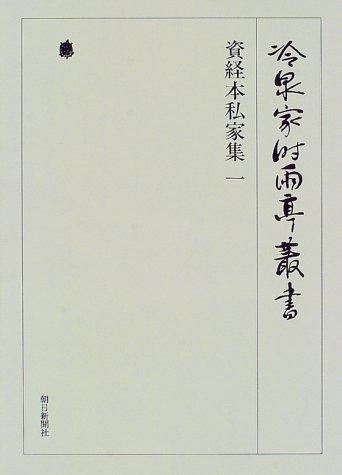 冷泉家時雨亭叢書
資経本私家集 一
朝日新聞社